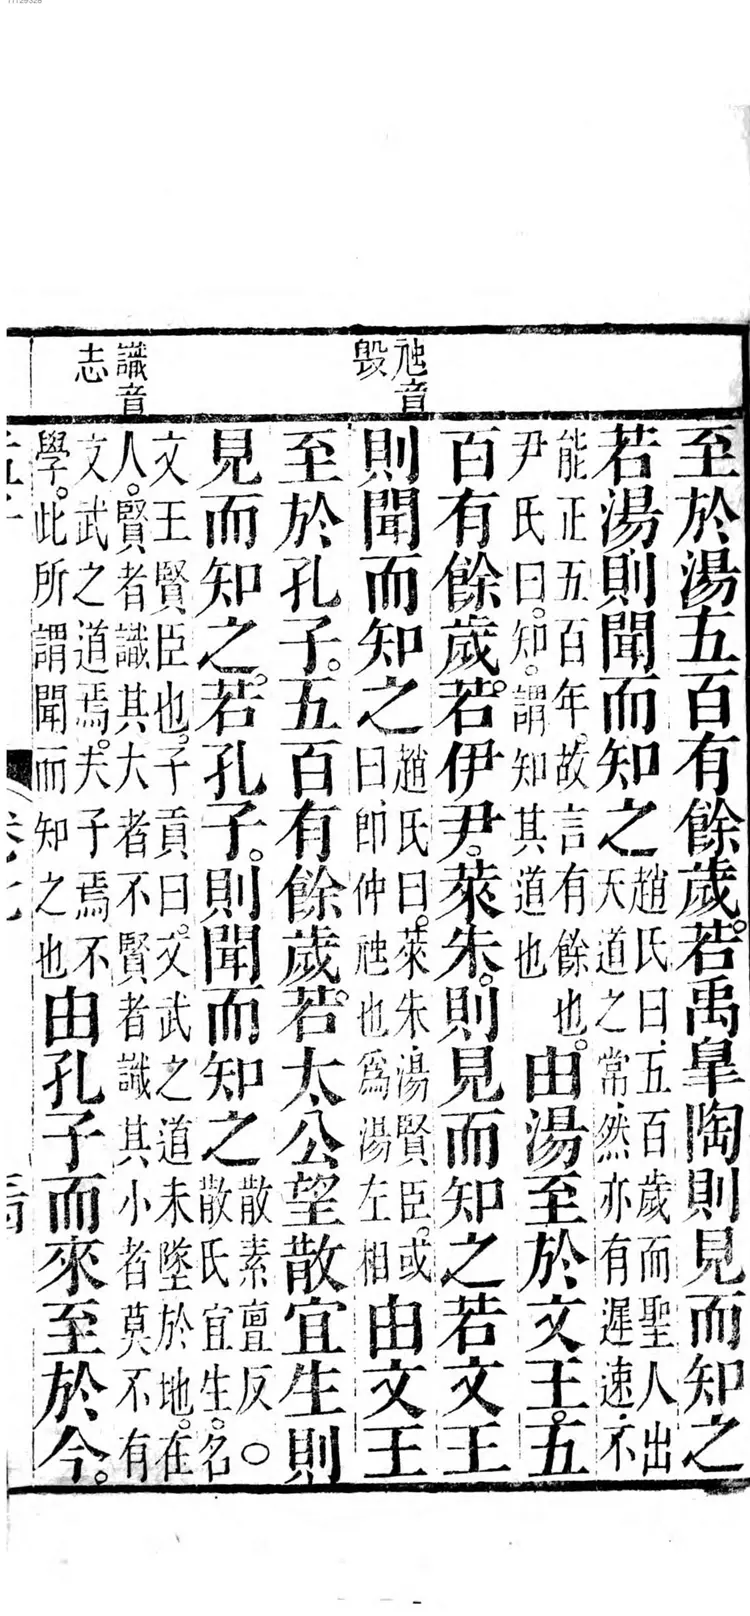 11129328
虺音
毁
識音
志
至於湯五百有餘歲。若禹臯陶則見而知之
若湯則聞而知之
趙氏曰。五百歲而聖人出
天道之常。然亦有遲速。不
能正五百年。故言有餘也。
尹氏曰。知。謂知其道也
由湯至於文王。五
百有餘歲。若伊尹。萊朱。則見而知之若文王
則聞而知之
趙氏曰。萊朱。湯賢臣。或
曰。卽仲虺也爲湯左相
由文王
至於孔子。五百有餘歲。若太公望散宜生則
見而知之。若孔子。則聞而知之
散素亶反〇
散氏宜生。名
文王賢臣也。子貢曰。文武之道未墜於地。在
人。賢者識其大者不賢者識其小者莫不有
文武之道焉。夫子焉不
學。此所謂聞而知之也
由孔子而來至於今。